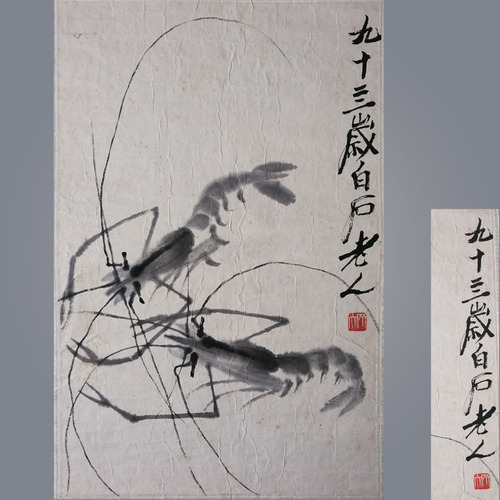 九十三歲白石老人
九十三歲白石老人